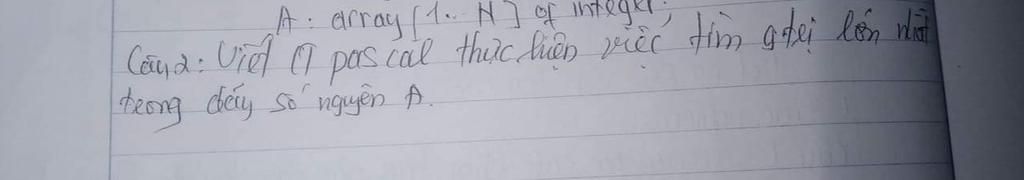 A: array [1.. N] of integer;
Câu 2: Viết CT pascal thực hiện việc tìm gtrị lớn nhất
trong dãy số nguyên A.